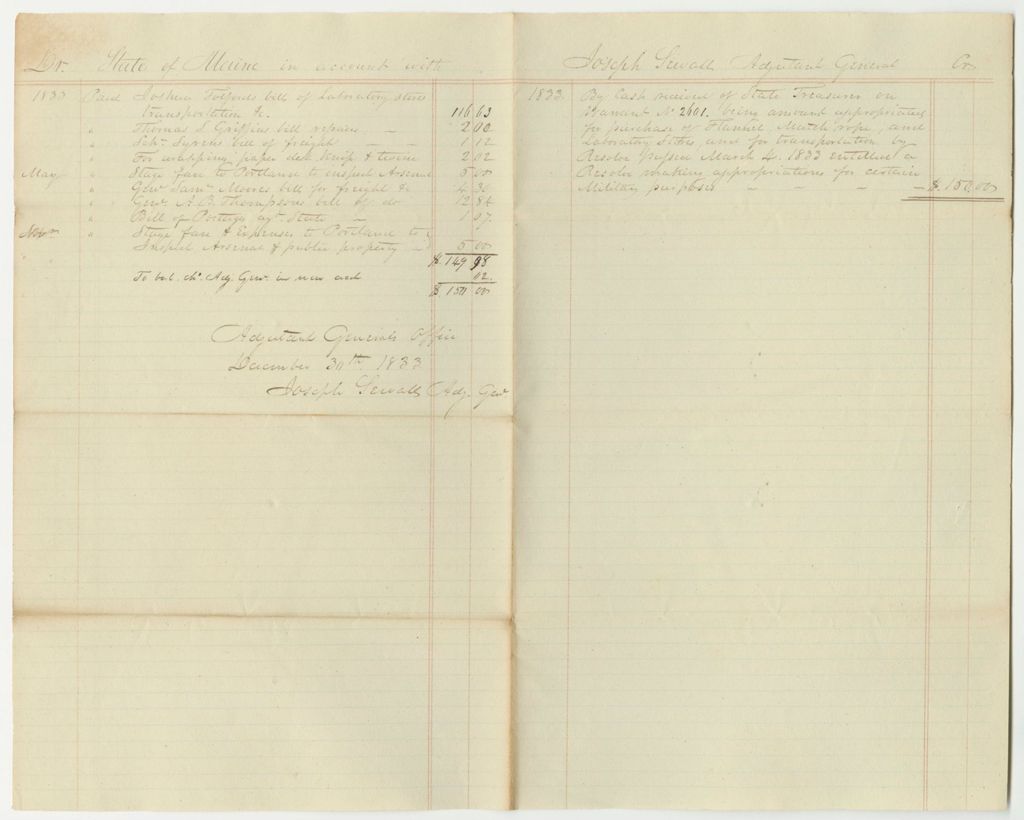 Dr. State of Maine in account with
1833 Paid Joshua Tolfords bill of Laboratory stores
transportation &c. 116 63
" Thomas S. Griffins bill repairs - 2 00
" Sch. Syrens bill of freight - - 1 12
" For wrapping paper desk knife & twine 2 02
May " Stage fare to Portland to inspect Arsenal 5 00
" Genl Saml Moores bill for freight &c 4 30
" Genl A. B. Thompsons bill by do 12 84
" Bill of Postage agt State - 1 07
Novr " Stage fare & Expenses to Portland to
Inspect Arsenal & public property - 5 00
$ 149 98
To bal. chd Adj. Genl in new acct 02
$ 150 00
Adjutant Generals Office
December 30th 1833
Joseph Sewall Adj. Genl
Joseph Sewall Adjutant General Cr
1833 By Cash received of State Treasurer on
Warrant No 2601. being amount appropriated
for purchase of Flannel, Match rope, and
Laboratory Stores, and for transportation by
Resolve passed March 4. 1833 entitled a
Resolve making appropriations for certain
Military purposes - - - - $ 150,00